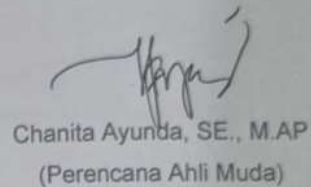 Chanita Ayunda, SE., M.AP
(Perencana Ahli Muda)